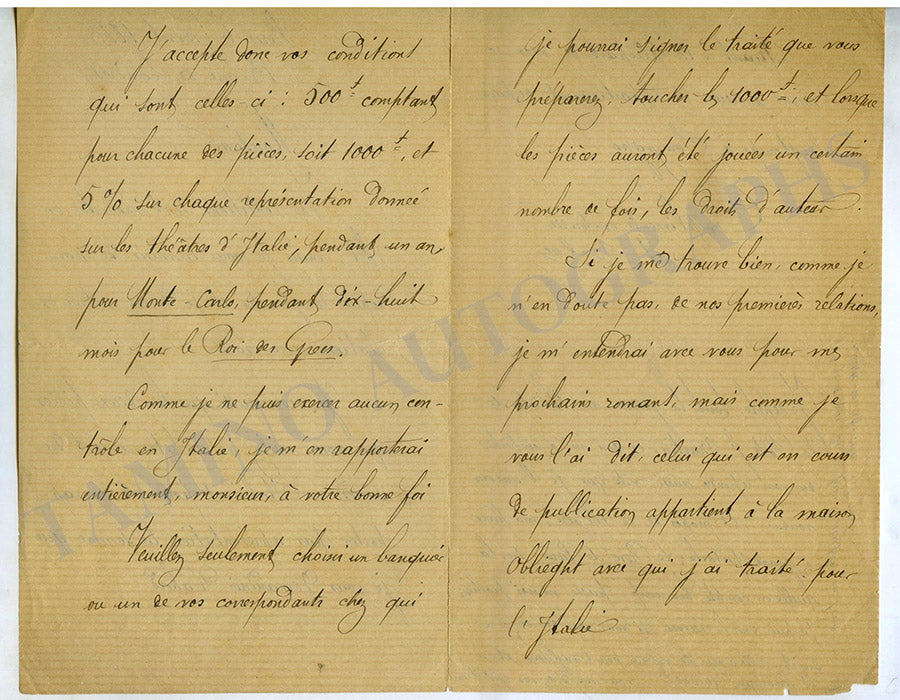 J'accepte donc vos conditions
qui sont celles-ci : 500 f comptant
pour chacune des pièces, soit 1000 f, et
5% sur chaque représentation donnée
sur les théâtres d'Italie, pendant un an
pour Monte-Carlo, pendant dix-huit
mois pour le Roi des Grecs.
Comme je ne puis exercer aucun con-
trôle en Italie, je m'en rapporterai
entièrement, monsieur, à votre bonne foi
Veuillez seulement choisir un banquier
ou un de vos correspondants chez qui
je pourrai signer le traité que vous
préparerez, toucher les 1000 f, et lorsque
les pièces auront été jouées un certain
nombre de fois, les droits d'auteur.
Si je me trouve bien, comme je
n'en doute pas, de nos premières relations,
je m'entendrai avec vous pour mes
prochains romans, mais comme je
vous l'ai dit, celui qui est en cours
de publication appartient à la maison
Oblieght avec qui j'ai traité pour
l'Italie
TAMINO AUTOGRAPHS